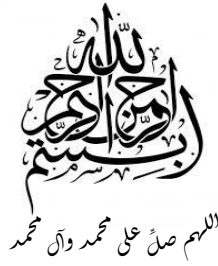 بسم الله الرحمن الرحيم
اللهم صلِّ على محمد وآل محمد